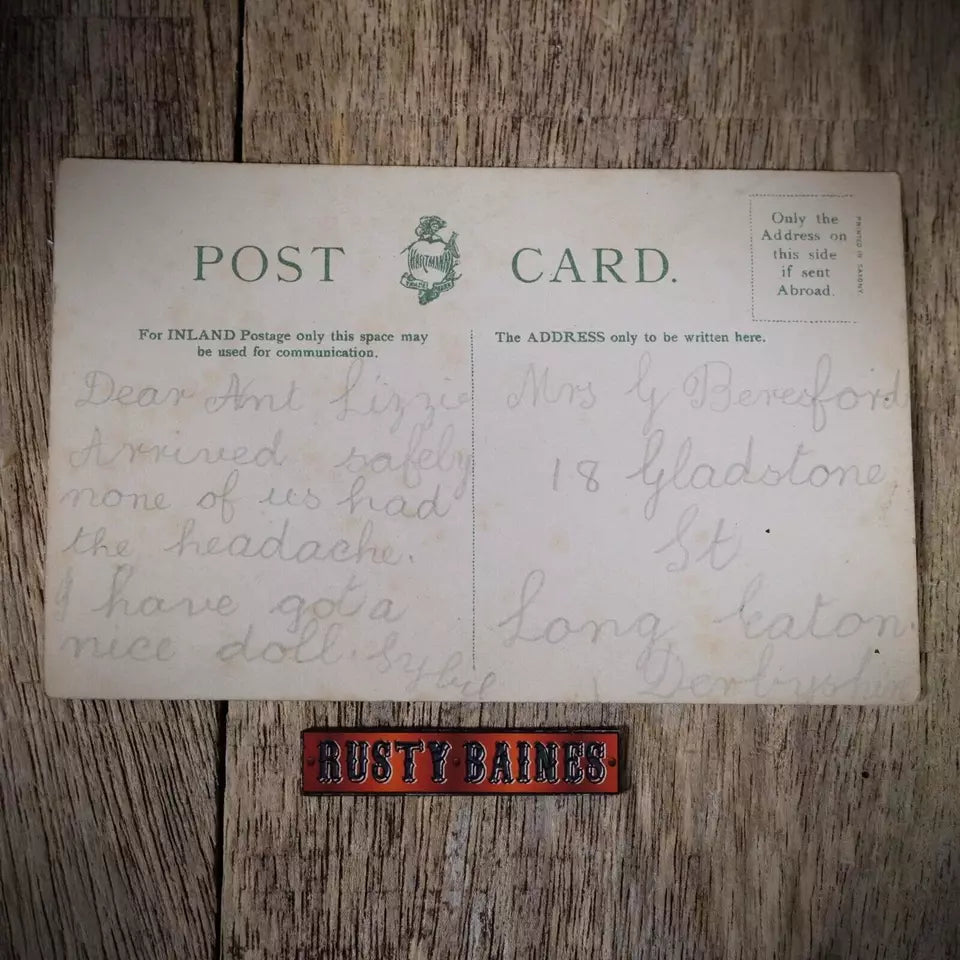 POST CARD.
HARTMANN
TRADE MARK
Only the
Address on
this side
if sent
Abroad.
PRINTED IN SAXONY.
For INLAND Postage only this space may
be used for communication.
The ADDRESS only to be written here.
Dear Ant Lizzie
Arrived safely
none of us had
the headache.
I have got a
nice doll. Sybil
Mrs G Beresford
18 Gladstone
St
Long Eaton.
Derbyshire
RUSTY BAINES